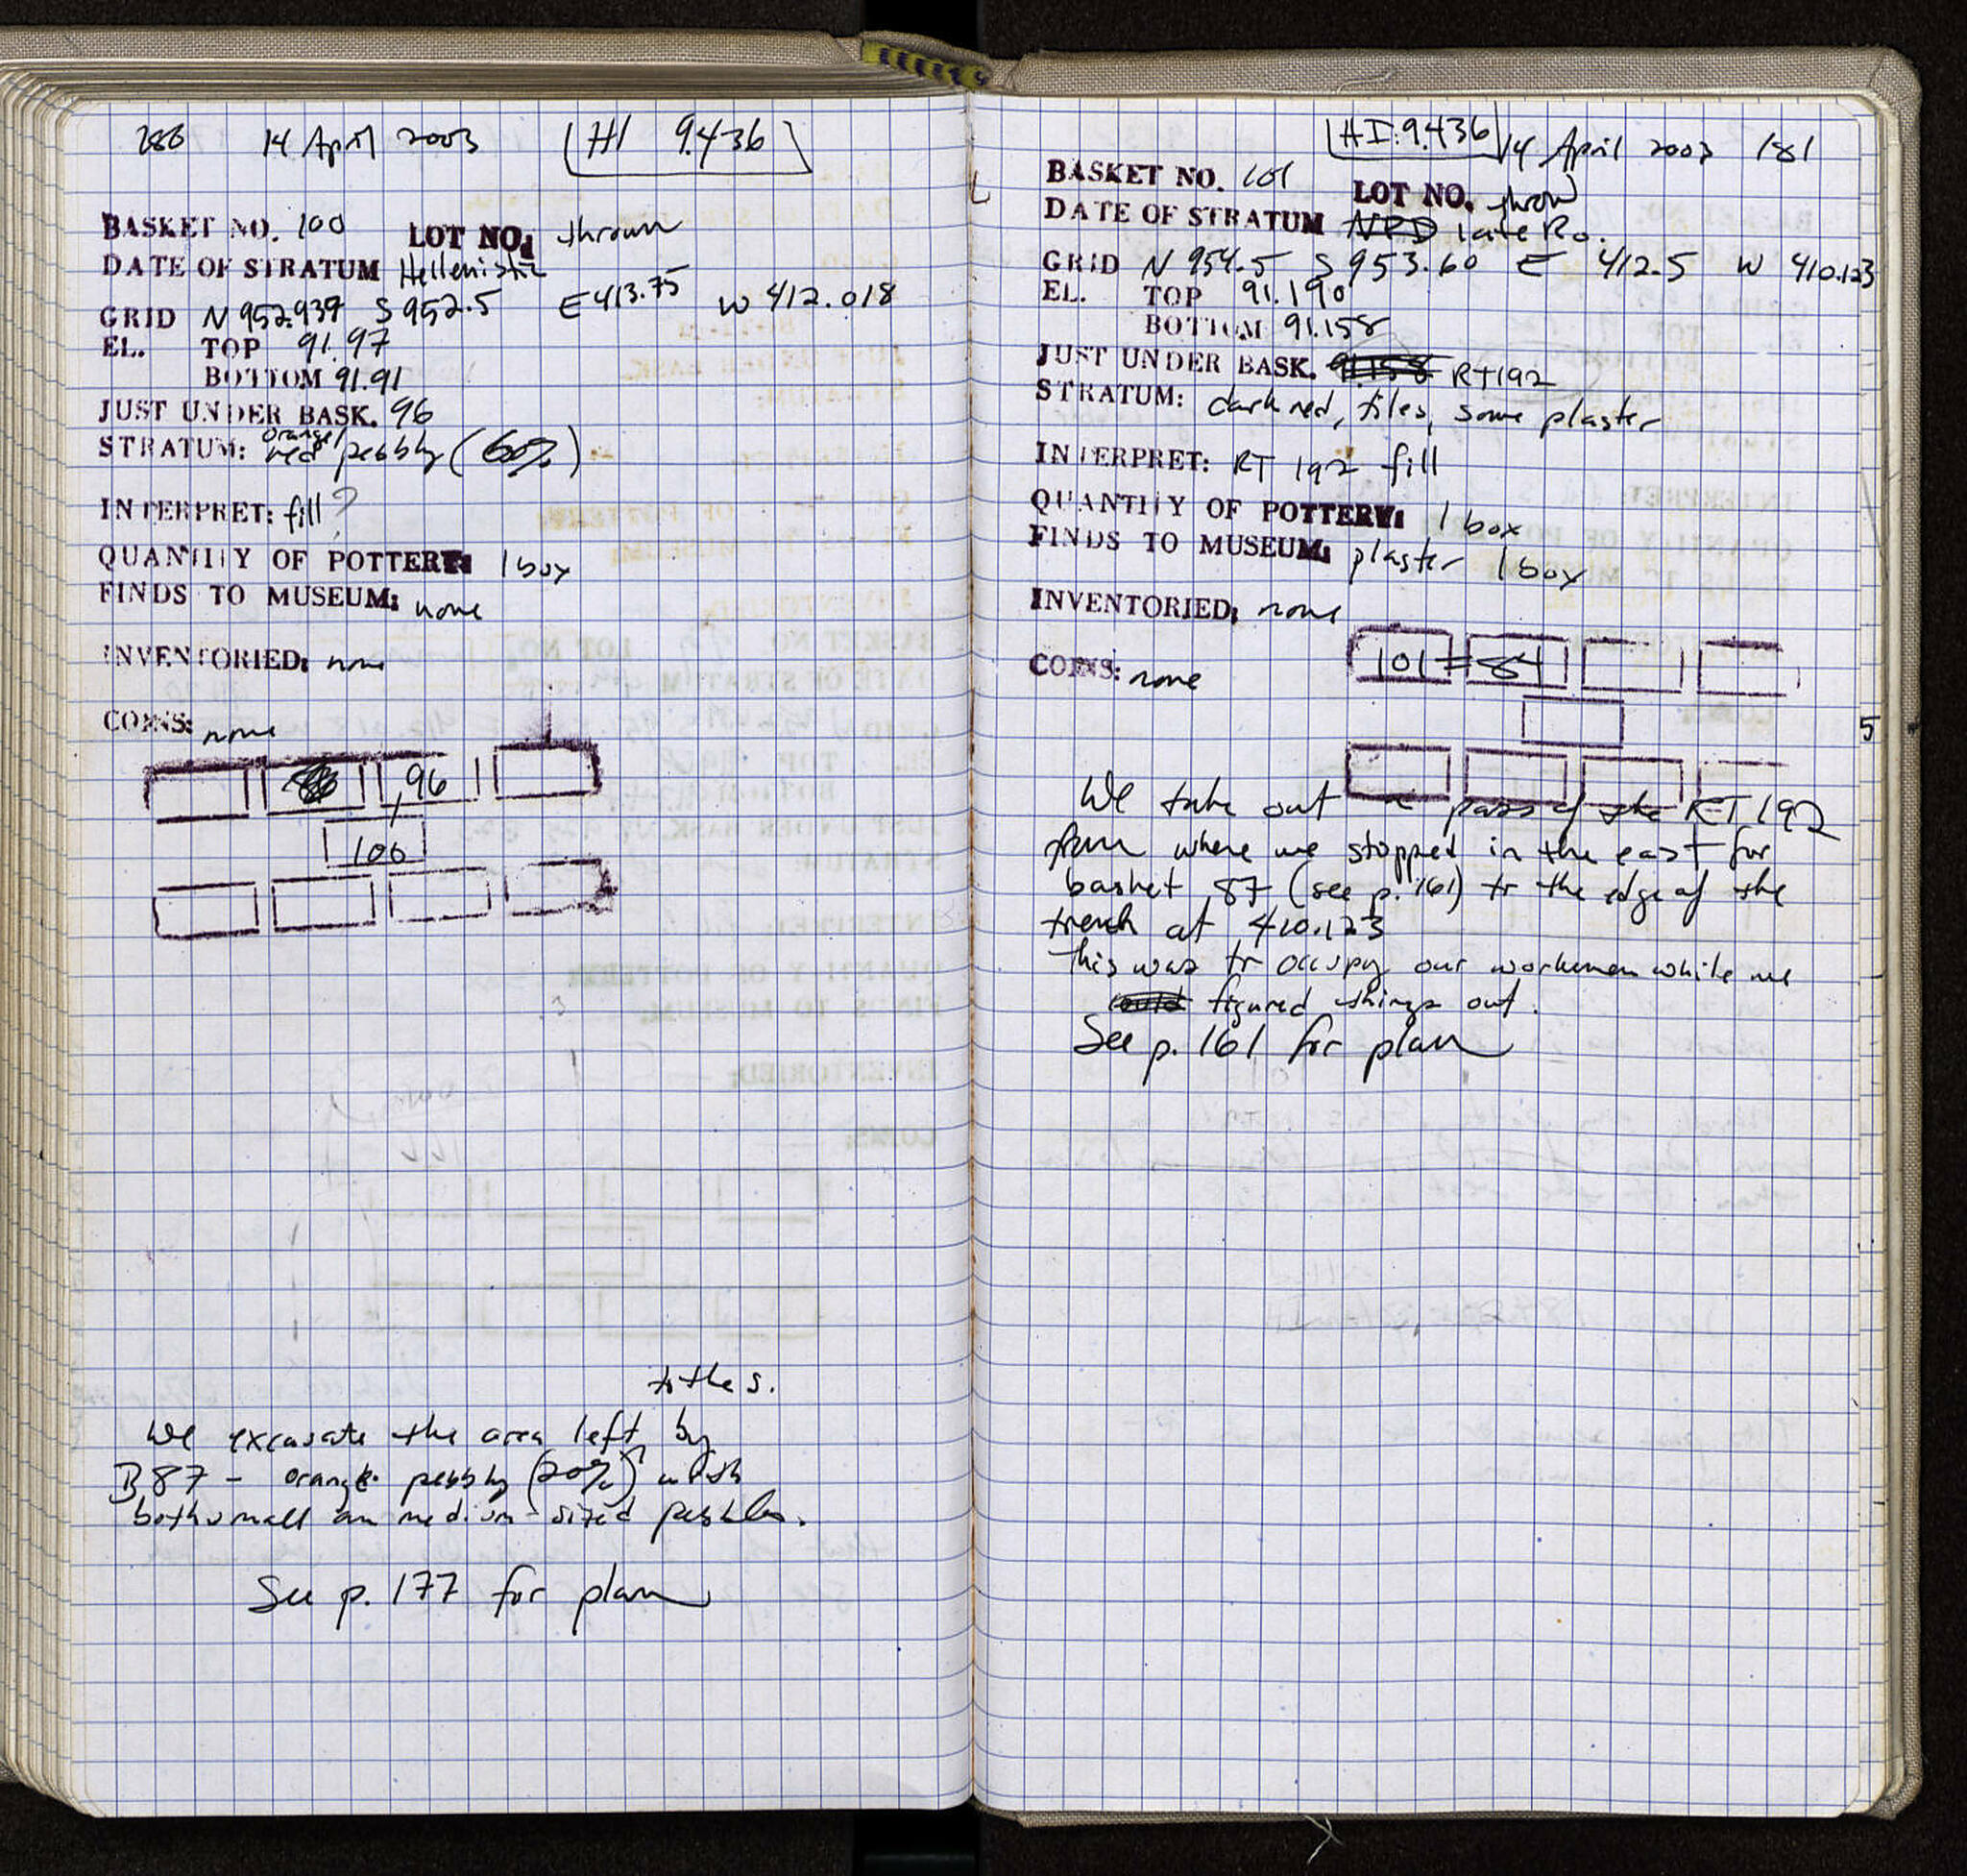 180 14 April 2003 HI 9.436
BASKET NO. 100 LOT NO. thrown
DATE OF STRATUM Hellenistic
GRID N 952.939 S 952.5 E 413.75 W 412.018
EL. TOP 91.97
BOTTOM 91.91
JUST UNDER BASK. 96
STRATUM: orange/ red pebbly (60%)
INTERPRET: fill ?
QUANTITY OF POTTERY: 1 box
FINDS TO MUSEUM: none
INVENTORIED: none
COINS: none
96
100
to the s.
We excavate the area left by
B87 - orange pebbly (20%) with
both small an medium-sized pebbles.
See p. 177 for plan
HI: 9.436 14 April 2003 181
BASKET NO. 101 LOT NO. throw
DATE OF STRATUM NPD late Ro.
GRID N 954.5 S 953.60 E 412.5 W 410.123
EL. TOP 91.190
BOTTOM 91.158
JUST UNDER BASK. 91.158 RT192
STRATUM: dark red, tiles, some plaster
INTERPRET: RT 192 fill
QUANTITY OF POTTERY: 1 box
FINDS TO MUSEUM: plaster 1 box
INVENTORIED: none
101 = 84
COINS: none
5
We take out a pass of the RT 192
from where we stopped in the east for
basket 87 (see p. 161) to the edge of the
trench at 410.123
This was to occupy our workmen while we
could figured things out.
See p. 161 for plan